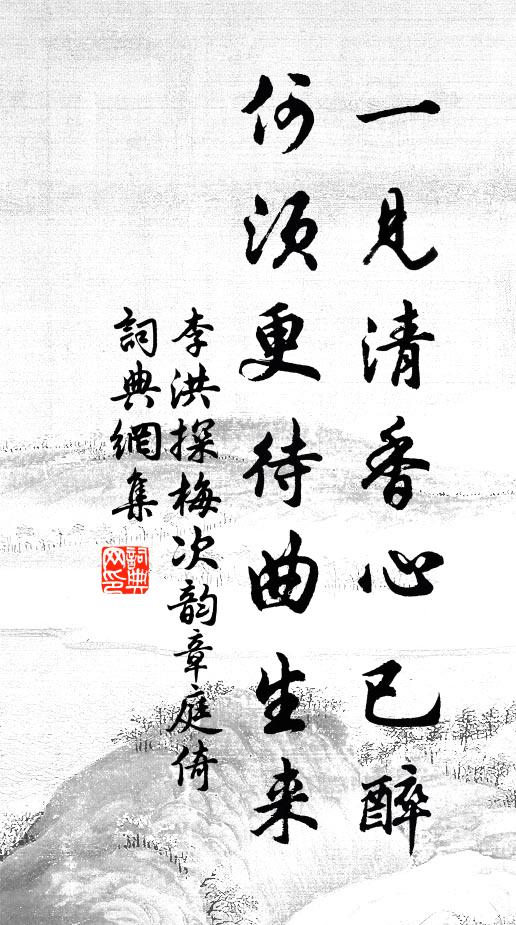 一见清香心已醉
何须更待曲生来
李洪探梅次韵章庭倚
詞典網集
詞典网印